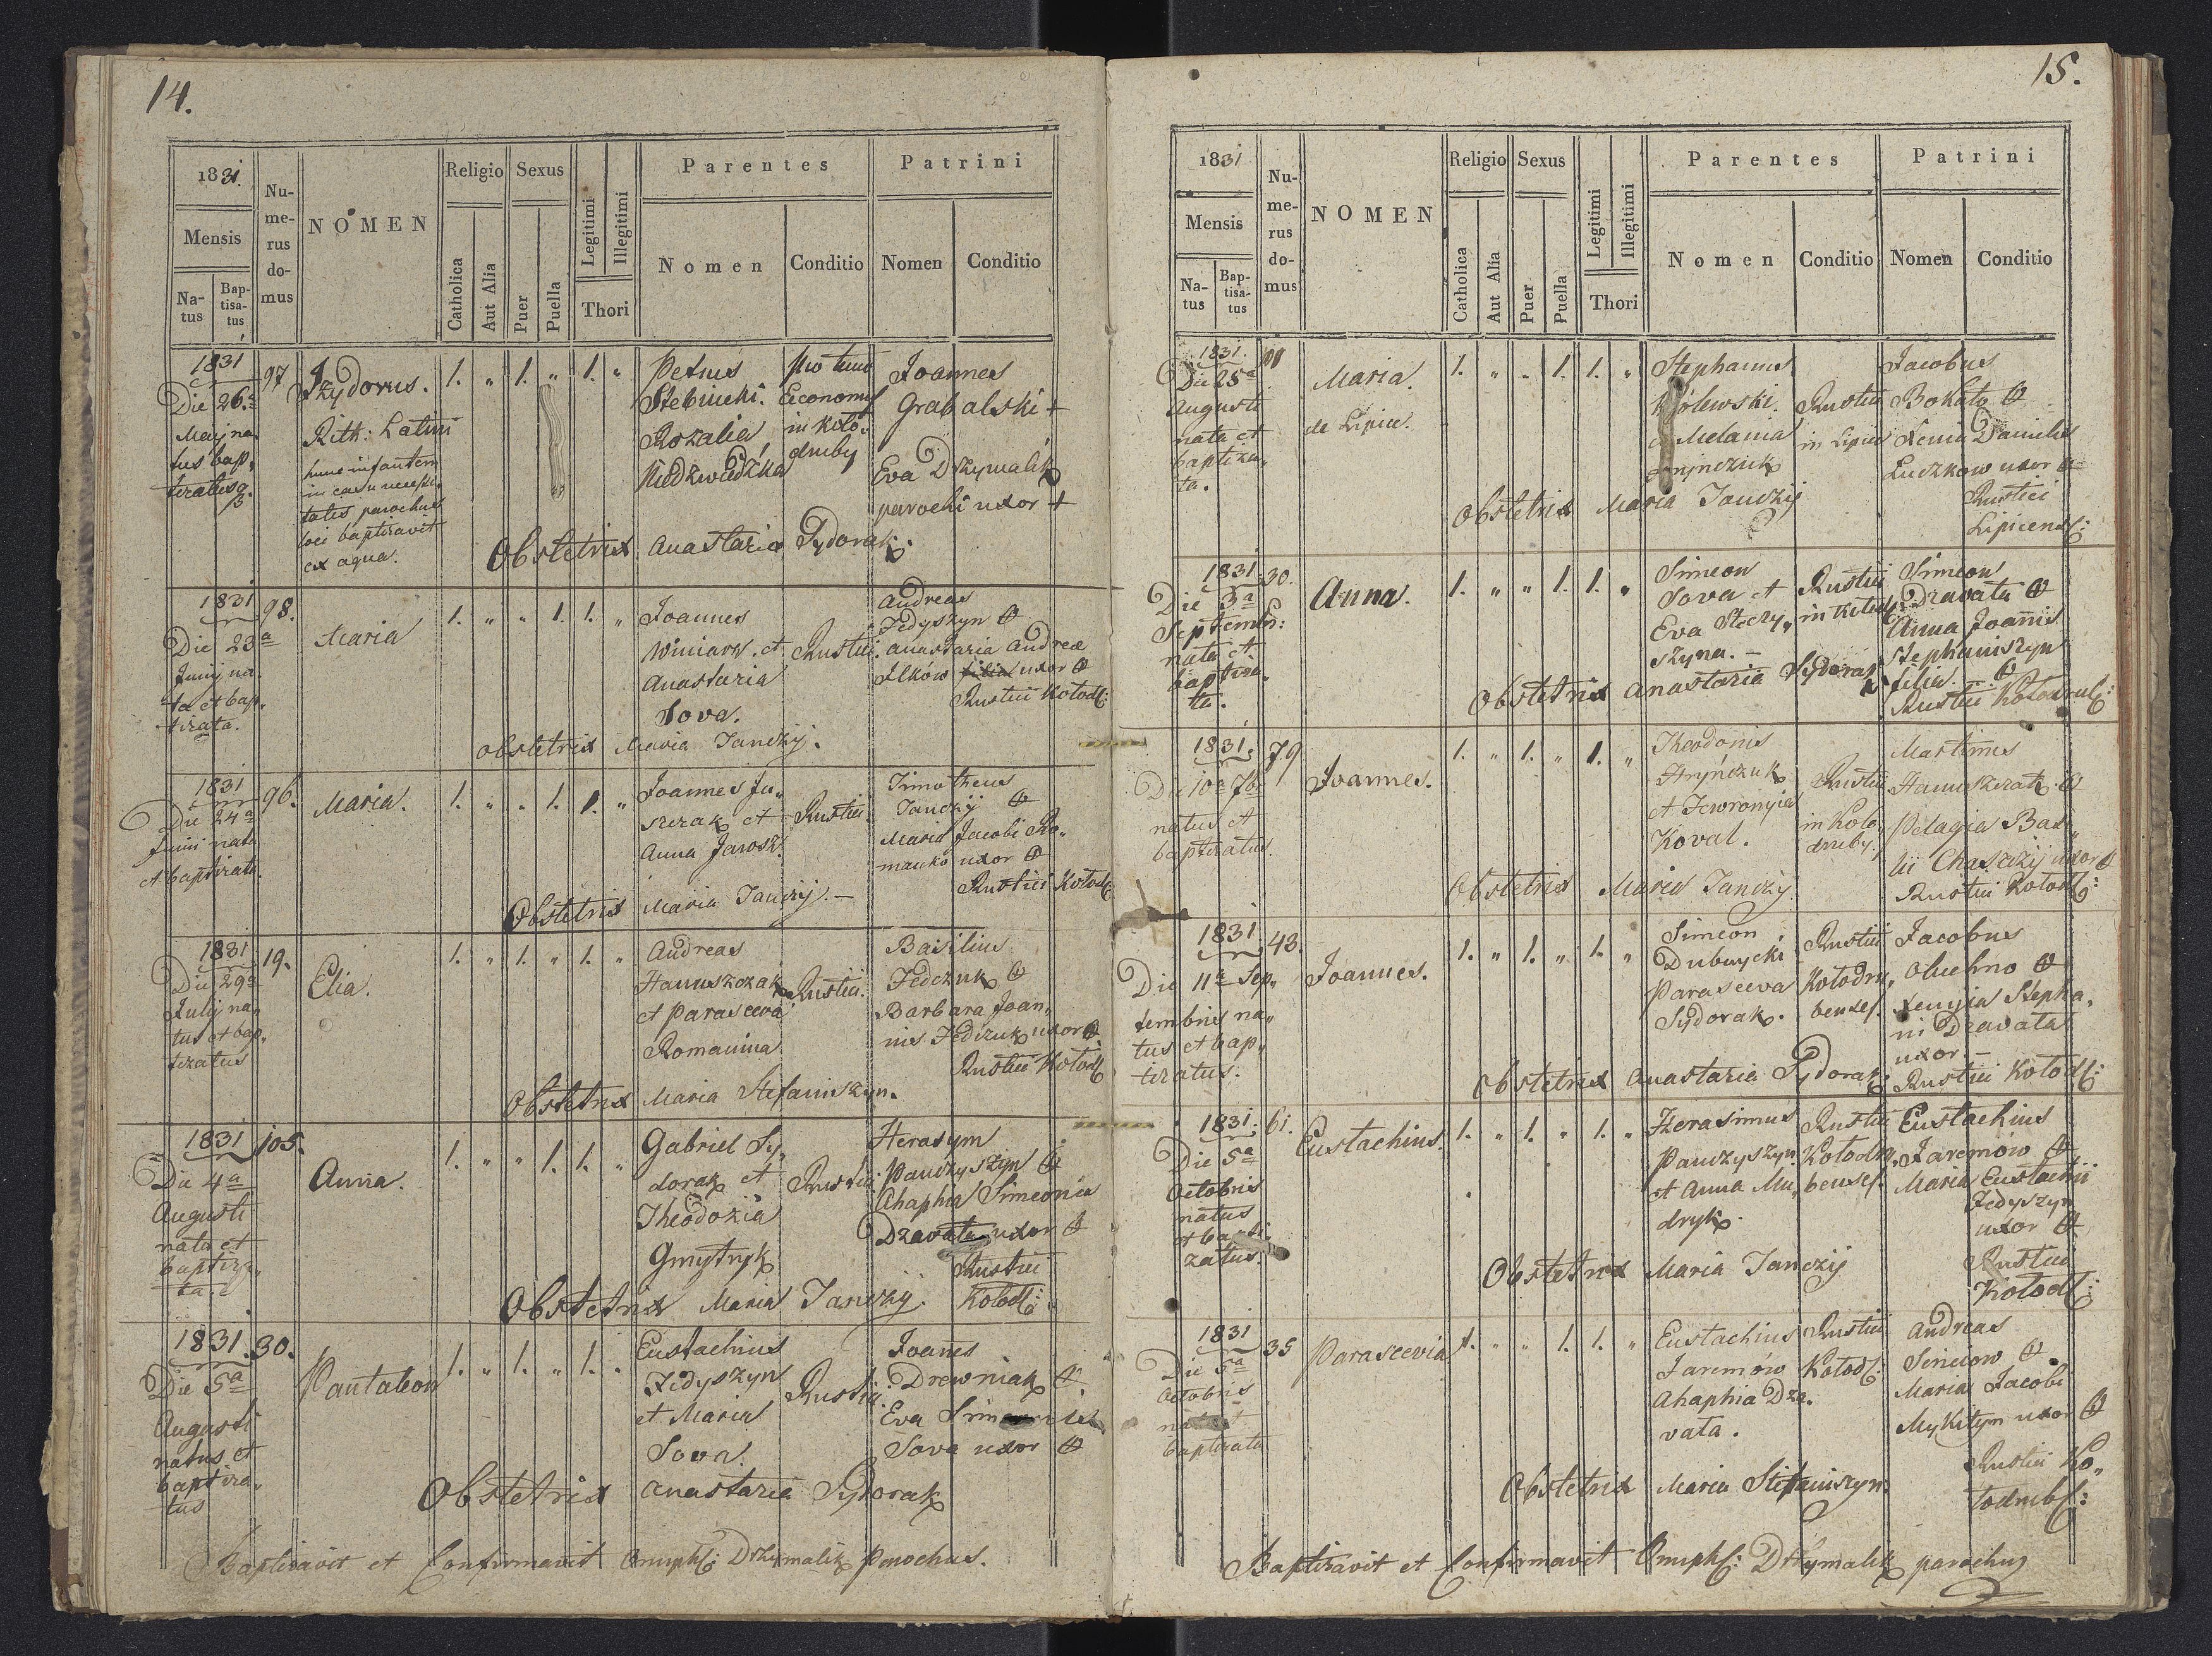 14.
1831.
Mensis
Na-
tus
Bap-
tisa-
tus
Nu-
me-
rus
do-
mus
NOMEN
Religio
Catholica
Aut Alia
Sexus
Puer
Puella
Legitimi
Illegitimi
Thori
Parentes
Nomen
Conditio
Patrini
Nomen
Conditio
1831
Die 26.a
Maij na
tus bap„
tizatus
97
Izydorus.
Rith: Latini
hunc infantem
in casu necessi„
tatis parochus
loci baptizavit
ex aqua.
1. „ 1. „ 1. „
Petrus
Stebnicki.
Rozalia
Niedzwiedzka
pro tunc
Economus
in Koło„
druby
Joannes
Grabalski +
Eva Drzymalik
parochi uxor +
Obstetrix Anastazia Sydorak.
1831
Die 23a
Junij na„
ta et bap„
tizata.
98.
Maria
1. „ „ 1. 1. „
Joannes
Winiarz. et
Anastazia
Sova.
Rustici.
Andreas
Fedyszyn
Anastazia Andreae
Ilków uxor
Rustici Kołod:
obstetrix Maria Janczij.
1831
Die 24a
Junii nata
et baptizata.
96.
Maria.
1. „ „ 1. 1. „
Joannes Ju„
szczak et
Anna Jarosz.
Rustici
Timotheus
Janczij
Maria Jacobi Ro„
manko uxor
Rustici Kołod:
Obstetrix Maria Janczij.—
1831
Die 29a
Julij na„
tus et bap„
tizatus
19.
Elia.
1. „ 1. „ 1. „
Andreas
Hanuszczak
et Parascevia
Romanina
Rustici.
Basilius
Fedczuk
Barbara Joan„
nis Fedczuk uxor
Rustici Kołod:
Obstetrix Maria Stefaniszyn.
1831
Die 4a
Augusti
nata et
baptiza„
ta.
105.
Anna.
1. „ „ 1. 1. „
Gabriel Sy„
dorak et
Theodozia
Gmytryk
Rustici
Herasym
Panczyszyn
Ahaphia Simeonis
Dzavata uxor
Rustici
Kołod:
Obstetrix Maria Janczij.
1831.
Die 5a
Augusti
natus et
baptiza„
tus
30.
Pantaleon
1. „ 1. „ 1. „
Eustachius
Fedyszyn
et Maria
Sova.
Rustici
Joanes
Drewniak
Eva
Sova uxor
Obstetrix Anastazia Sydorak
Baptizavit et Confirmavit Onuph: Drzymalik Parochus.
15.
1831
Mensis
Na-
tus
Bap-
tisa-
tus
Nu-
me-
rus
do-
mus
NOMEN
Religio
Catholica
Aut Alia
Sexus
Puer
Puella
Legitimi
Illegitimi
Thori
Parentes
Nomen
Conditio
Patrini
Nomen
Conditio
1831.
Die 25a
Augusti
nata et
baptiza„
ta.
Maria.
de Lipice.
1. „ „ 1. 1. „
Stephanus
Melania
Rustici
in Lipice
Jacobus
Bokato
Xenia Danielis
Luczkow uxor
Rustici
Lipicens:
Obstetrix Maria Janczij
1831
Die 3a
Septemb:
nata et
baptiza„
ta.
30.
Anna.
1. „ „ 1. 1. „
Simeon
Sova et
Eva Steczy„
szyna.—
Rustici
in Kołod:
Simeon
Dzavata
Anna Joannis
Stephaniszyn
filia.
Rustici Kołodrub:
Obstetrix Anastazia Sydorak
1831.
Die 10a 7b
natus et
baptizatus.
79
Joannes.
1. „ 1. „ 1. „
Theodorus
Hryńczuk
et Fewronyia
Koval.
Rustici
in Koło„
druby.
Martinus
Hanuszczak.
Pelagia Basi„
lii Chaszczij uxor
Rustici Kołod:
Obstetrix Maria Janczij
1831.
Die 11a Sep„
tembris na„
tus et bap„
tizatus.
43.
Joannes.
1. „ 1. „ 1. „
Simeon
Dubnycki
Parasceva
Sydorak.
Rustici
Kołodru„
benses.
Jacobus
Oluchno
Xenyia Stepha„
ni Dzavata
uxor.—
Rustici Kołod:
Obstetrix Anastazia Sydorak
1831.
Die 5a
Octobris
natus
et bapti„
zatus.
61.
Eustachius.
1. „ 1. „ 1. „
Herasimus
Panczyszyn
et Anna Mu„
dryk.
Rustici
Kołodru„
benses.
Eustachius
Jaremów
Maria Eustachii
Fedyszyn
uxor
Rustici
Kołod:
Obstetrix Maria Janczij
1831
Die 5a
Octobris
nata et
baptizata
35
Parascevia
1. „ „ 1. 1. „
Eustachius
Jaremów
Ahaphia Dza„
vata.
Rustici
Kołod:
Andreas
Seńciow
Maria Jacobi
Mykityn uxor
Rustici Ko„
łodrub:
Obstetrix Maria Stefaniszyn
Baptizavit et Confirmavit Onuph: Drzymalik parochus